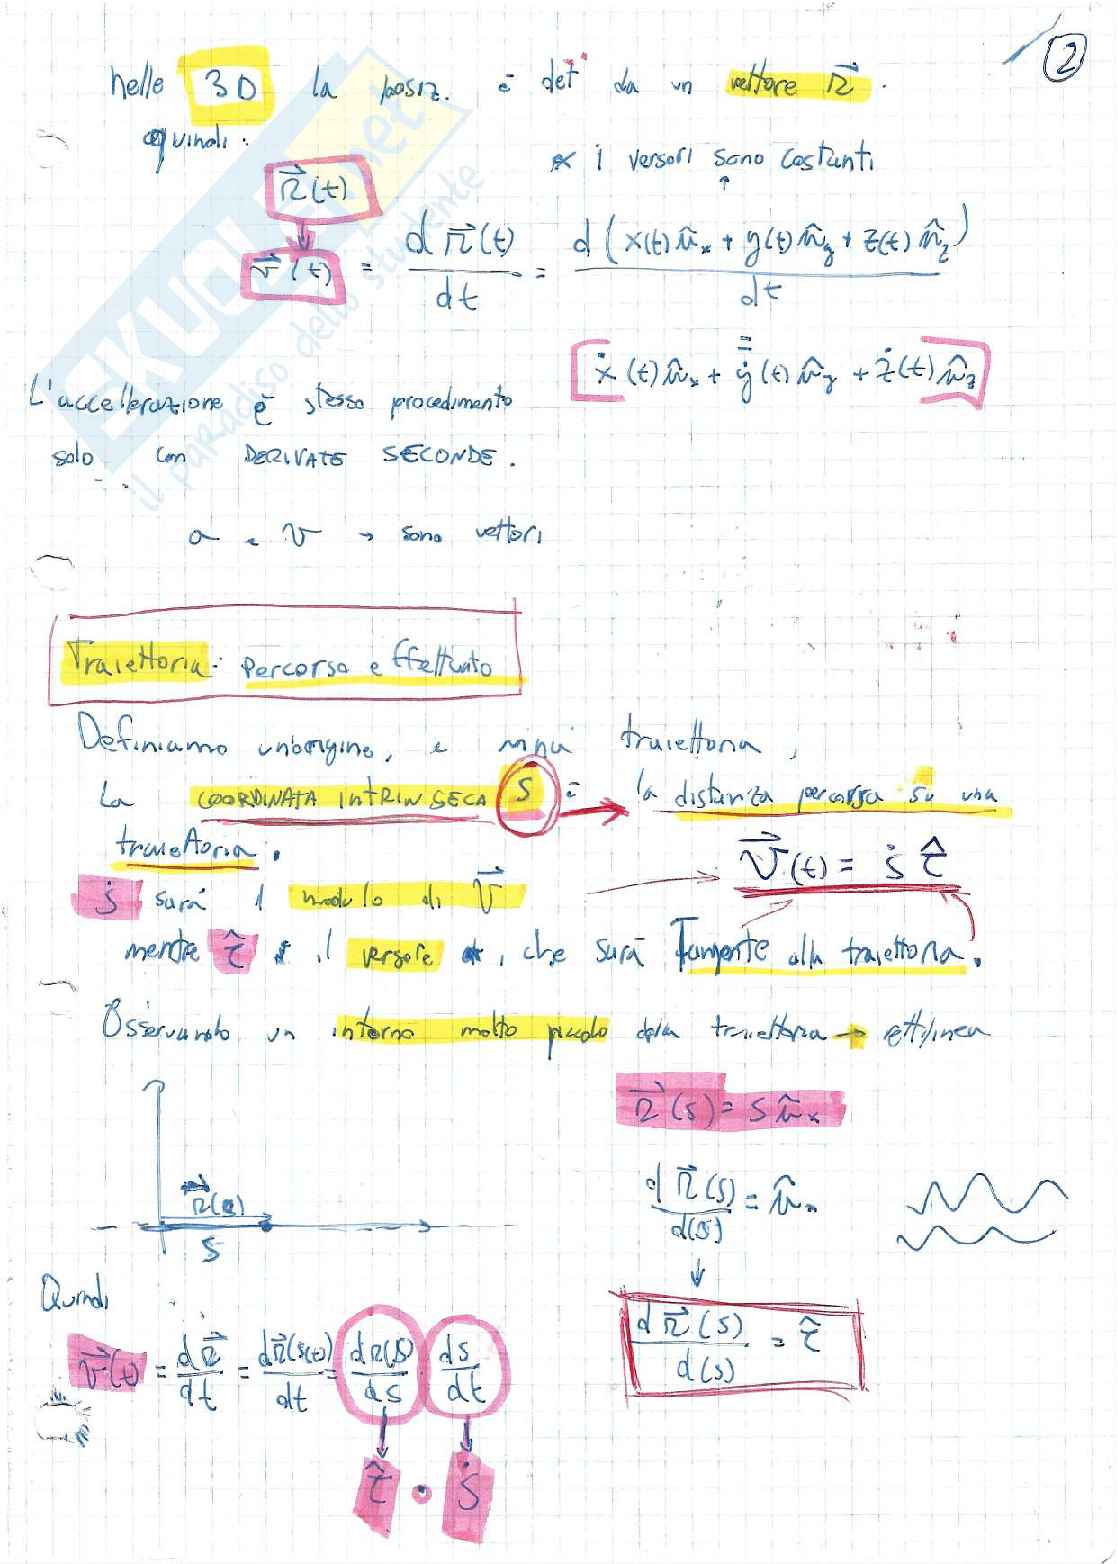 2
nelle 3D la posiz. è det da un vettore r⃗.
quindi:
* i versori sono costanti
r⃗(t)
v⃗(t) = d r⃗(t) / dt = d (x(t) û_x + y(t) û_y + z(t) û_z) / dt
=
ẋ(t) û_x + ẏ(t) û_y + ż(t) û_z
L'accellerazione è stesso procedimento
solo con DERIVATE SECONDE.
a e v → sono vettori
Traiettoria: percorso effettuato
Definiamo un'origine, e una traiettoria,
La COORDINATA INTRINSECA S è → la distanza percorsa su una
traiettoria.
v⃗(t) = ṡ τ̂
ṡ sarà il modulo di v⃗
mentre τ̂ è il versore, che sarà Tangente alla traiettoria.
Osservando un intorno molto piccolo della traiettoria → rettilinea
r⃗(s) = s û_x
r⃗(s)
s
d r⃗(s) / d(s) = û_x
↓
d r⃗(s) / d(s) = τ̂
Quindi
v⃗(t) = d r⃗ / dt = d r⃗(s(t)) / dt = d r(s) / ds · ds / dt
τ̂ · ṡ
SKUOLA.net
il paradiso dello studente